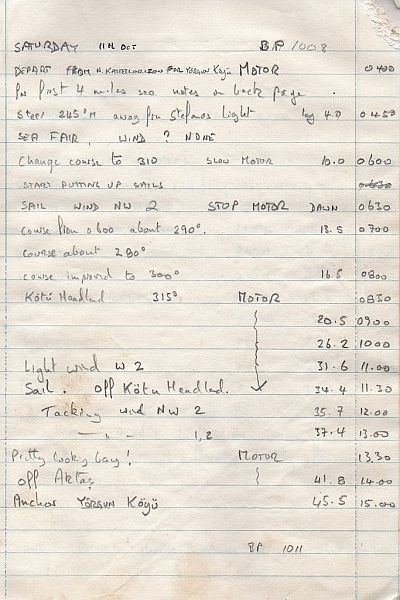 SATURDAY 11th OCT BP 1008
DEPART FROM N. KASTELLORIZON FOR YÖRGUN Köyü MOTOR 0400
for first 4 miles see notes on back page.
Steer 245°M away from Stefanos Light log 4.0 0450
SEA FAIR, WIND ? NONE
Change course to 310 SLOW MOTOR 10.0 0600
START PUTTING UP SAILS 0630
SAIL WIND NW 2 STOP MOTOR DAWN 0630
course from 0600 about 290°. 13.5 0700
course about 280°
course improved to 300° 16.5 0800
Kötü Headland 315° MOTOR 0830
20.5 0900
26.2 1000
Light wind W 2 31.6 11.00
Sail. off Kötü Headland. 34.4 11.30
Tacking wind NW 2 35.7 12.00
" - 1,2 37.4 13.00
Pretty looking bay! MOTOR 13.30
off Aktaş 41.8 14.00
Anchor YÖRGUN KÖYÜ 45.5 15.00
BP 1011